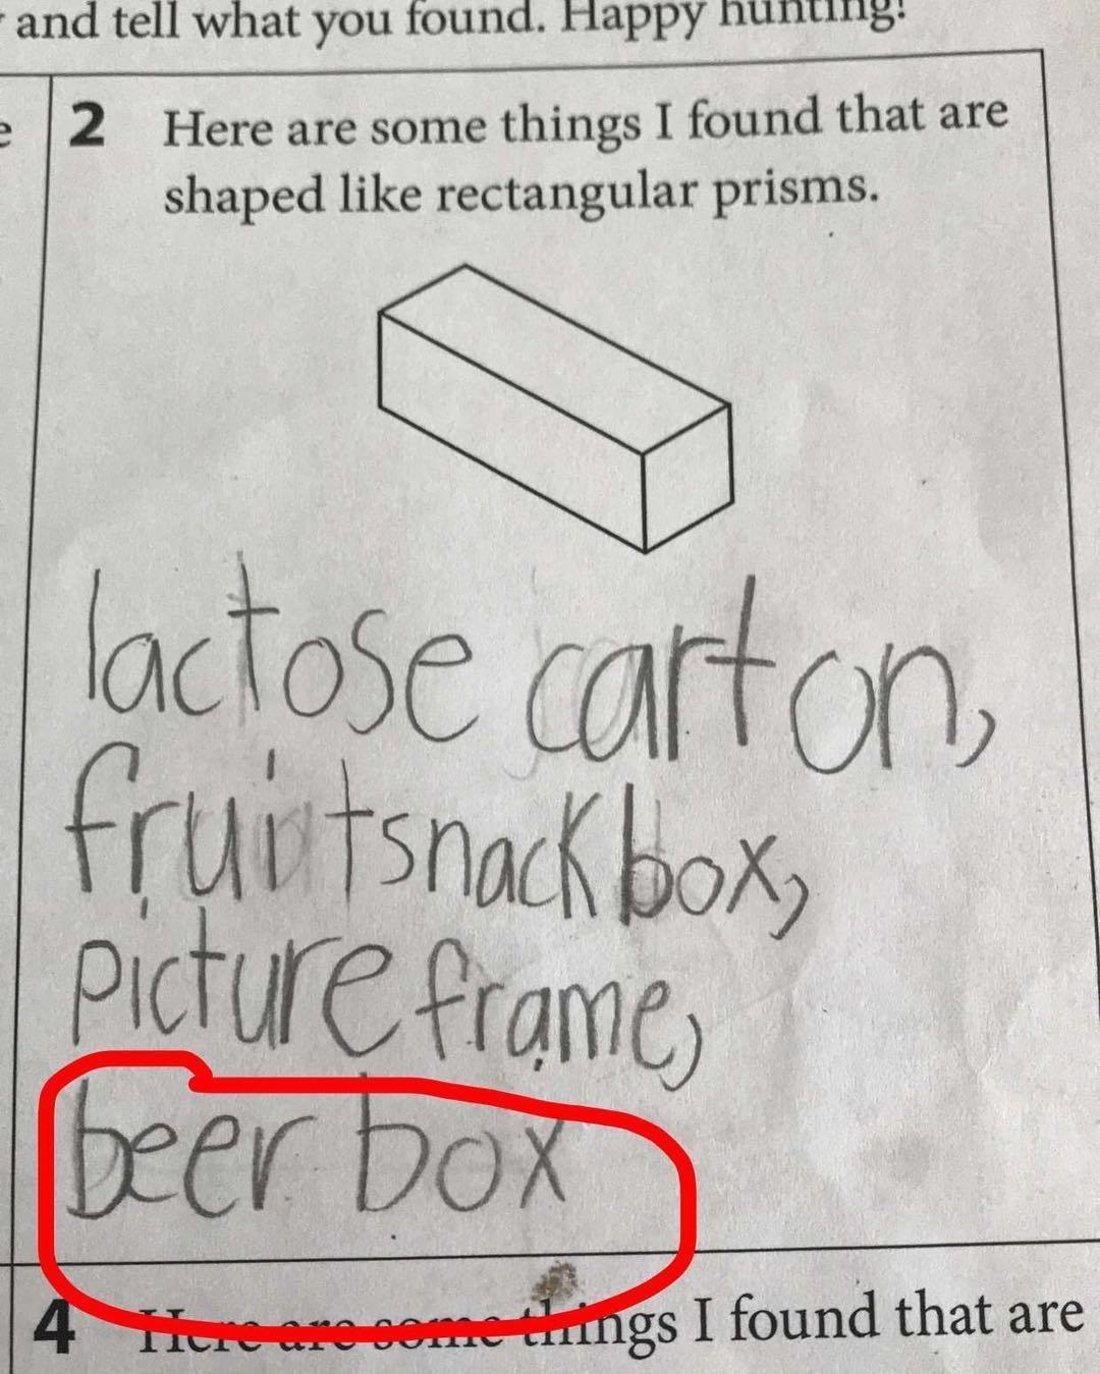 and tell what you found. Happy hunting!
2 Here are some things I found that are
shaped like rectangular prisms.
lactose carton,
fruitsnack box,
picture frame,
beer box
4 Here are some things I found that are